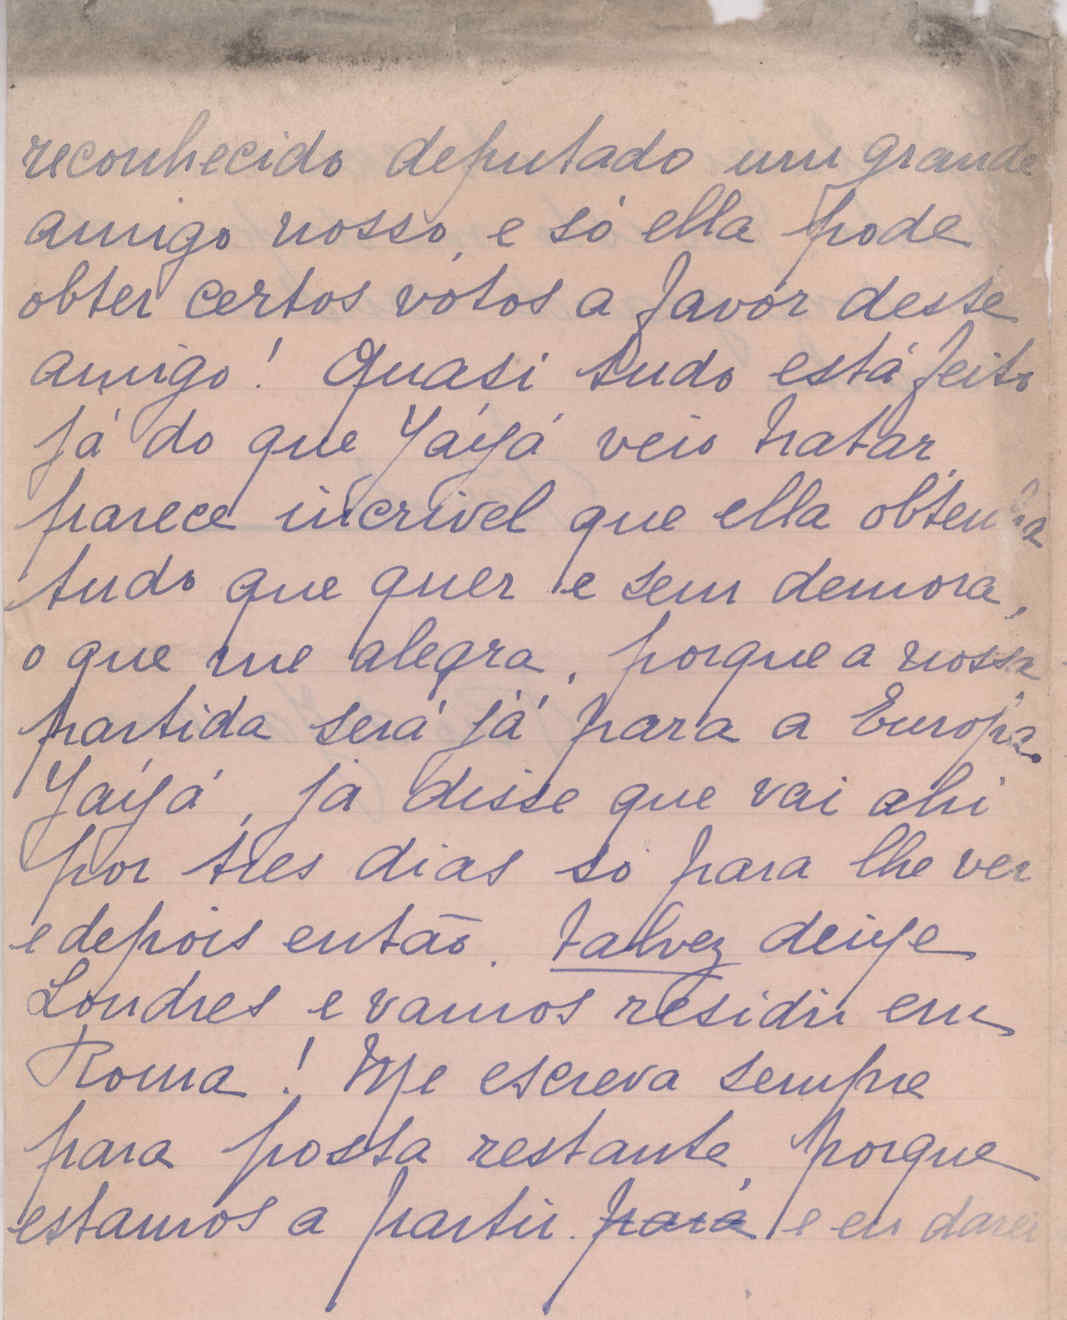 reconhecido deputado um grande
amigo nosso, e só ella pode
obter certos vótos a favôr deste
amigo! Quasi tudo está feito
já do que Yáyá veio tratar,
parece incrivel que ella obtenha
tudo que quer e sem demora,
o que me alegra, porque a nossa
partida será já para a Európa.
Yáyá, já disse que vai ahi
por tres dias só para lhe ver
e depois então. Talvez deixe
Londres e vamos residir em
Roma! Me escreva sempre
para posta restante, porque
estamos a partir. pará e eu darei